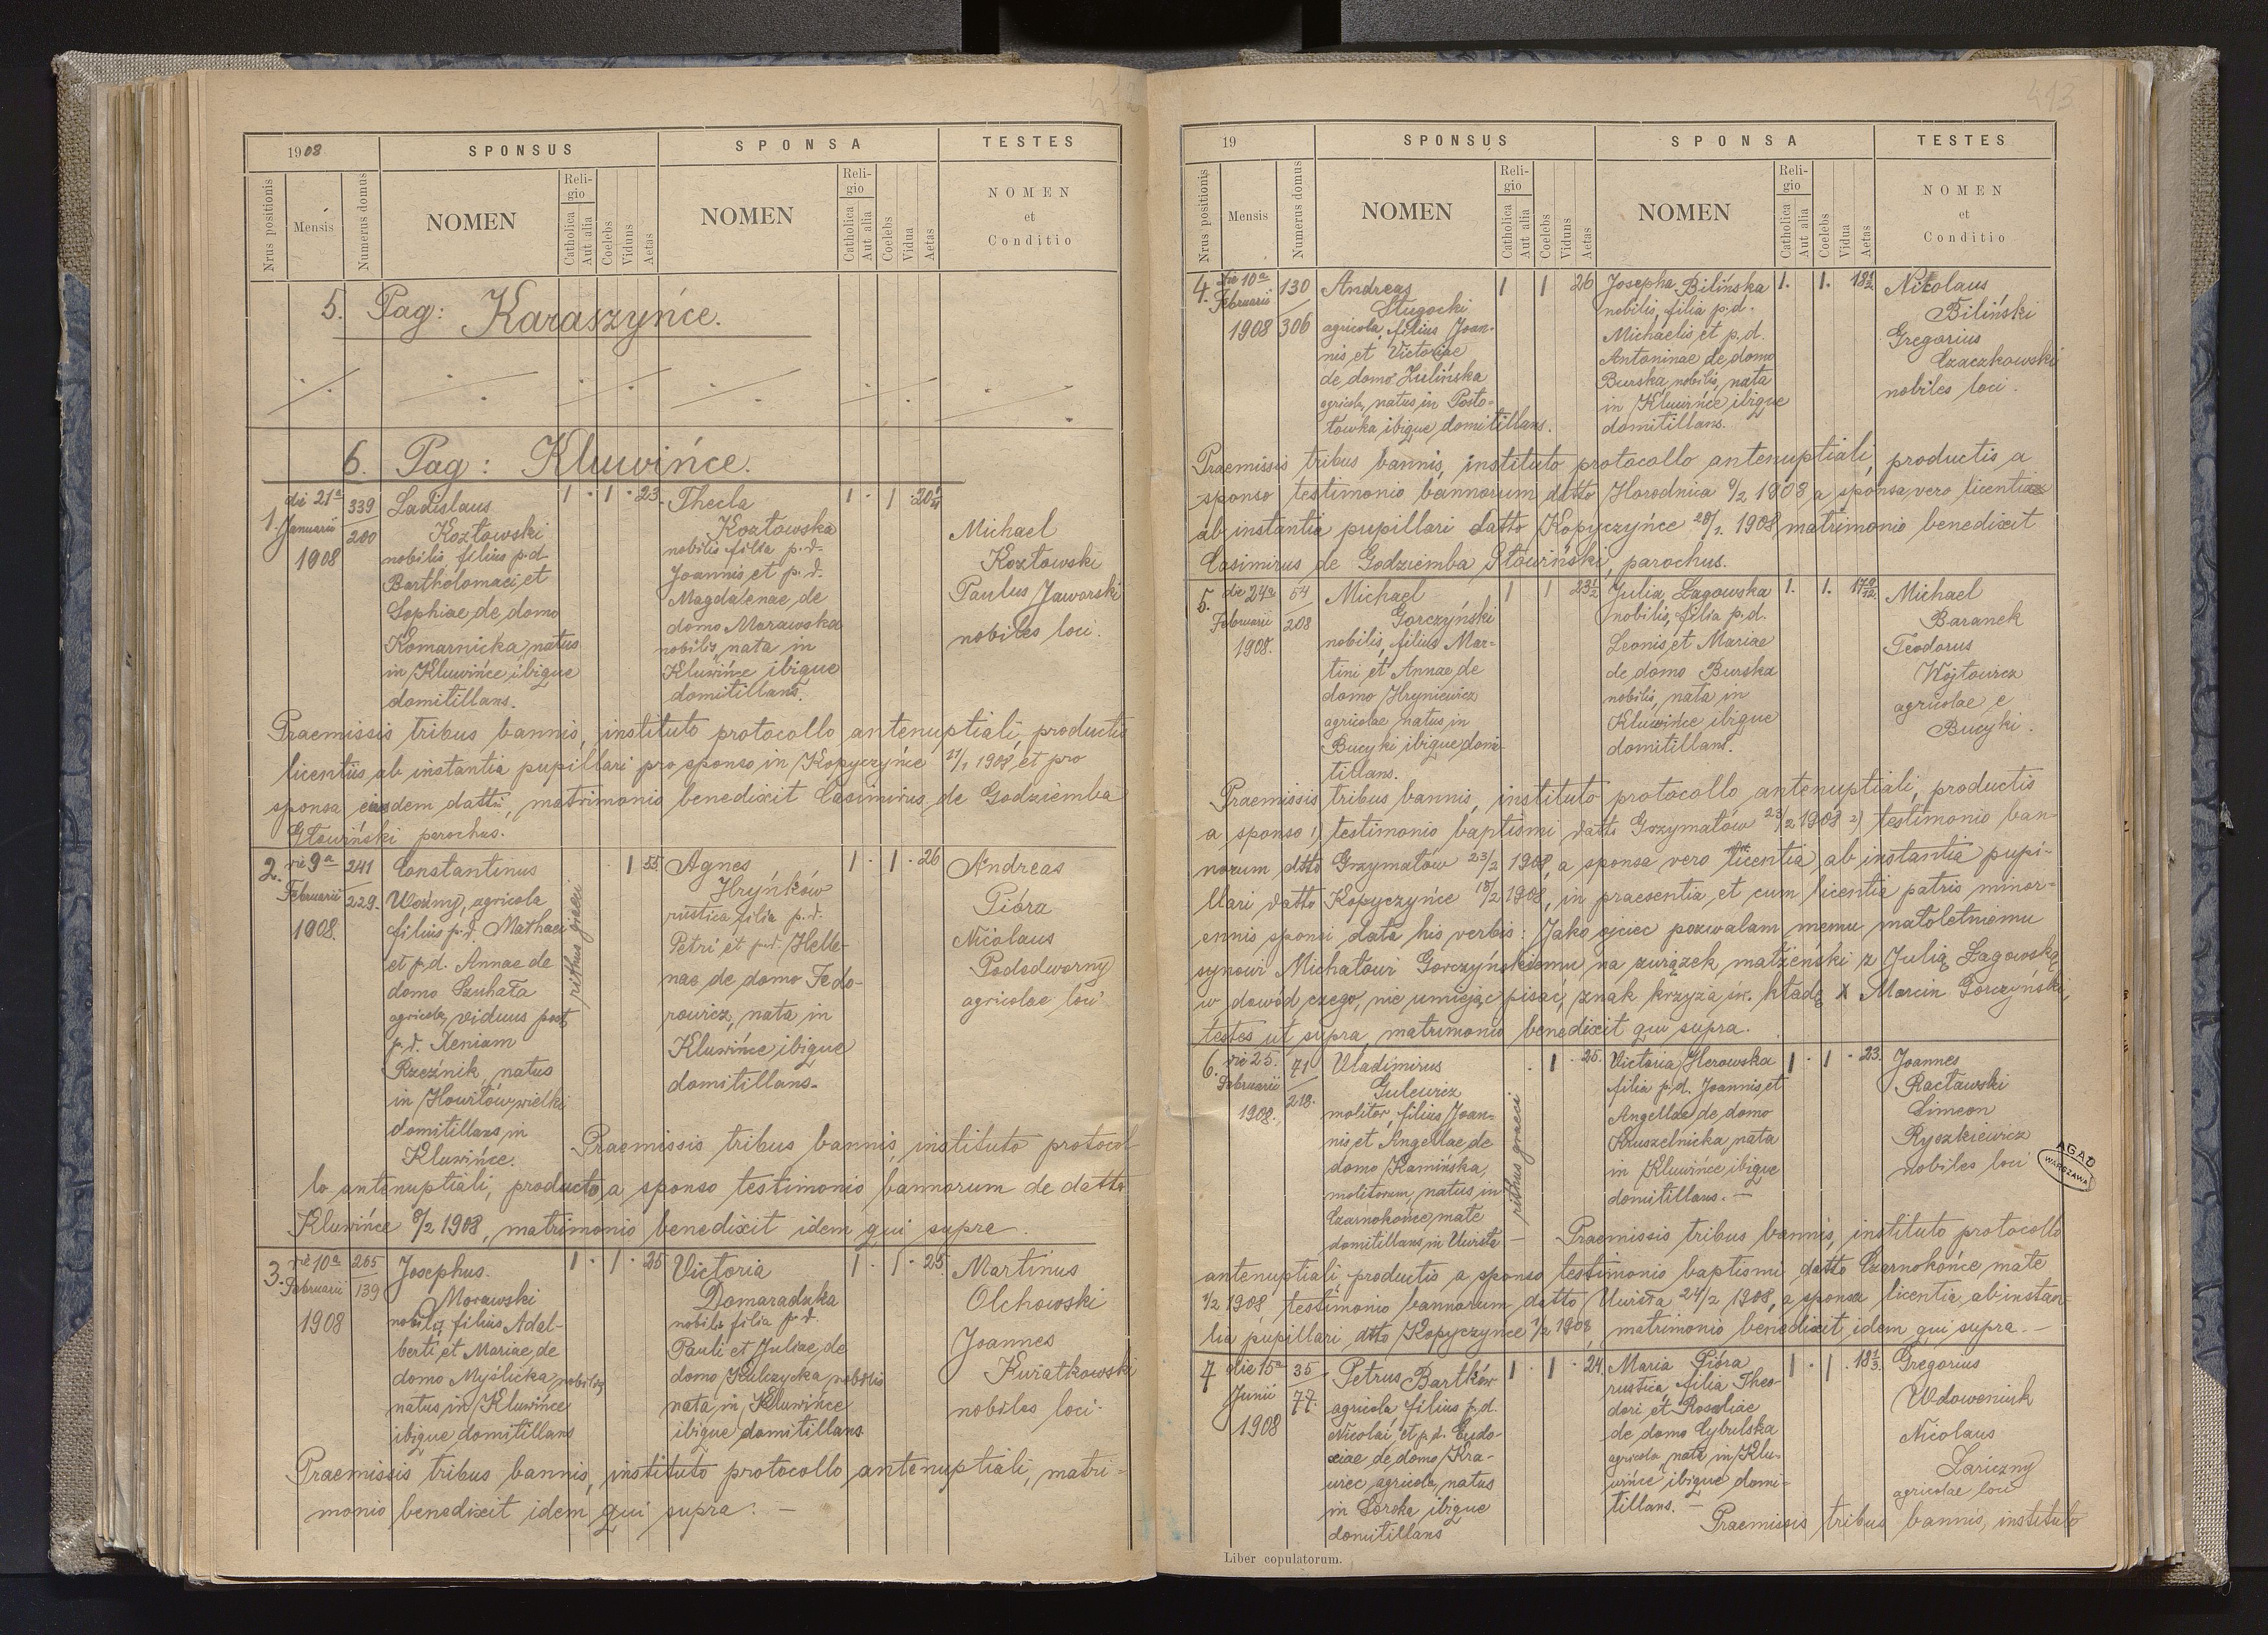 1908
SPONSUS
SPONSA
TESTES
Nrus positionis
Mensis
Numerus domus
NOMEN
Religio
Catholica
Aut alia
Coelebs
Viduus
Aetas
NOMEN
Religio
Catholica
Aut alia
Coelebs
Vidua
Aetas
NOMEN
et
Conditio
5. Pag: Karaszyńce.
6. Pag: Kluwińce.
1.
die 21a
Januarii
1908
339
200
Ladislaus
Kozłowski
nobilis, filius p.d.
Bartholomaei et
Sophiae de domo
Komarnicka, natus
in Kluwińce ibique
domitillans.
1 · 1 · 23
Thecla
Kozłowska
nobilis filia p.d.
Joannis et p.d.
Magdalenae de
domo Morawska
nobilis, nata in
Kluwińce ibique
domitillans.
1 · 1 · 20 1/4
Michael
Kozłowski
Paulus Jaworski
nobiles loci.
Praemissis tribus bannis, instituto protocollo antenuptiali, productis
licentiis ab instantia pupillari pro sponso in Kopyczyńce 11/1 1908, et pro
sponsa eiusdem datti, matrimonio benedixit Casimirus de Godziemba
Głowiński parochus.
2.
die 9a
Februarii
1908.
241
229
Constantinus
Woźny, agricola
filius p.d. Mathaei
et p.d. Annae de
domo Szuhała
agricola, viduus post
p.d. Xeniam
Rzeźnik, natus
in Howiłów wielki
domitillans in
Kluwińce.
ritus graeci
· 1 55
Agnes
Hryńków
rustica filia p.d.
Petri et p.d. Helle-
nae de domo Fedo-
rowicz, nata in
Kluwińce ibique
domitillans.
1 · 1 · 26
Andreas
Pióra
Nicolaus
Pododworny
agricolae loci
Praemissis tribus bannis, instituto protocol
lo antenuptiali, producto a sponso testimonio bannorum de datto
Kluwińce 9/2 1908, matrimonio benedixit idem qui supra.
3.
die 10a
Februarii
1908
265
139
Josephus
Morawski
nobilis filius Adal-
berti et Mariae de
domo Myślicka, nobilis
natus in Kluwińce
ibique domitillans
1 · 1 · 25
Victoria
Domaradzka
nobilis filia p.d.
Pauli et Juliae de
domo Kulczycka nobilis
nata in Kluwińce
ibique domitillans
1 · 1 · 25
Martinus
Olchowski
Joannes
Kwiatkowski
nobiles loci.
Praemissis tribus bannis, instituto protocollo antenuptiali, matri-
monio benedixit idem qui supra. —
413
19
SPONSUS
SPONSA
TESTES
Nrus positionis
Mensis
Numerus domus
NOMEN
Religio
Catholica
Aut alia
Coelebs
Viduus
Aetas
NOMEN
Religio
Catholica
Aut alia
Coelebs
Vidua
Aetas
NOMEN
et
Conditio
4.
die 10a
Februarii
1908
130
306
Andreas
Długocki
agricola, filius Joan-
nis et Victoriae
de domo Zulińska
agricola, natus in Posto-
łówka ibique domitillans.
1 1 26
Josepha Bilińska
nobilis, filia p.d.
Michaelis et p.d.
Antoninae de domo
Burska nobilis, nata
in Kluwińce ibique
domitillans.
1. 1. 18 1/2
Nikolaus
Biliński
Gregorius
Czaczkowski
nobiles loci.
Praemissis tribus bannis, instituto protocollo antenuptiali, productis a
sponso testimonio bannorum datto Horodnica 9/2 1908, a sponsa vero licentia
ab instantia pupillari datto Kopyczyńce 28/1 1908, matrimonio benedixit
Casimirus de Godziemba Głowiński, parochus.
5.
die 24a
Februarii
1908.
54
208
Michael
Gorczyński
nobilis, filius Mar-
tini et Annae de
domo Hryniewicz
agricolae natus in
Bucyki ibique domi-
tillans.
1 1 23 1/2
Julia Łagowska
nobilis, filia p.d.
Leonis et Mariae
de domo Burska
nobilis, nata in
Kluwińce ibique
domitillans.
1. 1. 17 9/12
Michael
Baranek
Teodorus
Wojtowicz
agricolae e
Bucyki.
Praemissis tribus bannis, instituto protocollo antenuptiali, productis
a sponso 1) testimonio baptismi datto Grzymałów 23/2 1908 2) testimonio ban-
norum dtto Grzymałów 23/2 1908, a sponsa vero licentia ab instantia pupi-
llari datto Kopyczyńce 18/2 1908, in praesentia et cum licentia patris minor-
ennis sponsi data his verbis: Jako ojciec pozwalam memu małoletniemu
synowi Michałowi Gorczyńskiemu na związek małżeński z Julią Łagowską,
w dowód czego, nie umiejąc pisać, znak krzyża św. kładę X Marcin Gorczyński,
testes ut supra, matrimonio benedixit qui supra.
6.
die 25.
Februarii
1908.
71
218.
Vladimirus
Gulewicz
molitor, filius Joan-
nis et Angellae de
domo Kamińska,
molitorum, natus in
Czarnokońce małe
domitillans in Uwisła —
ritus graeci
· 1 · 25.
Victoria Herowska
filia p.d. Joannis, et
Angellae de domo
Kruszelnicka nata
in Kluwińce ibique
domitillans. —
1 · 1 · 23.
Joannes
Racławski
Simeon
Ryszkiewicz
nobiles loci
AGAD
WARSZAWA
Praemissis tribus bannis, instituto protocollo
antenuptiali, productis a sponso testimonio baptismi datto Czarnokońce małe
1/2 1908, testimonio bannorum datto Uwisła 24/2 1908, a sponsa licentia ab instan-
tia pupillari dtto Kopyczyńce 1/2 1908, matrimonio benedixit idem qui supra. —
7
die 15a
Junii
1908
35
77.
Petrus Bartków
agricola filius p.d.
Nicolai et p.d. Eudo-
xiae de domo Kra-
wiec agricola, natus
in Soroka ibique
domitillans
1 · 1 · 24.
Maria Pióra
rustica, filia Theo-
dori et Rosaliae
de domo Cybulska
agricola nata in Klu-
wińce ibique domi-
tillans. —
1 · 1 · 18 1/3.
Gregorius
Wdoweniuk
Nicolaus
Łariczny
agricolae loci
Praemissis tribus bannis, instituto
Liber copulatorum.